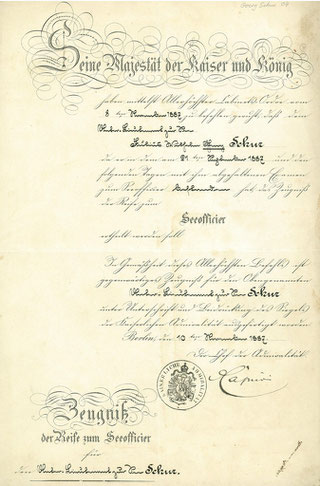 Seine Majestät der Kaiser und König
haben mittelst Allerhöchster Kabinets-Ordre vom
8ten November 1887 zu befehlen geruht, daß dem
Unter-Lieutenant zur See
Wilhelm Georg
zu der in den am 21ten September 1887 und den
folgenden Tagen mit ihm abgehaltenen Examen
zum Seeoffizier bestandenen hat, das Zeugniß
der Reife zum
Seeofficier
ertheilt werden soll.
In Gemäßheit dieses Allerhöchsten Befehls ist
gegenwärtiges Zeugniß für den
Unter-Lieutenant zur See
unter Unterschrift und Beidrückung des Siegels
der Kaiserlichen Admiralität ausgefertigt worden.
Berlin, den 10ten November 1887.
Der Chef der Admiralität.
Caprivi
KAISERLICHE ADMIRALITÄT
Zeugniß
der Reife zum Seeofficier
für
den Unter-Lieutenant zur See